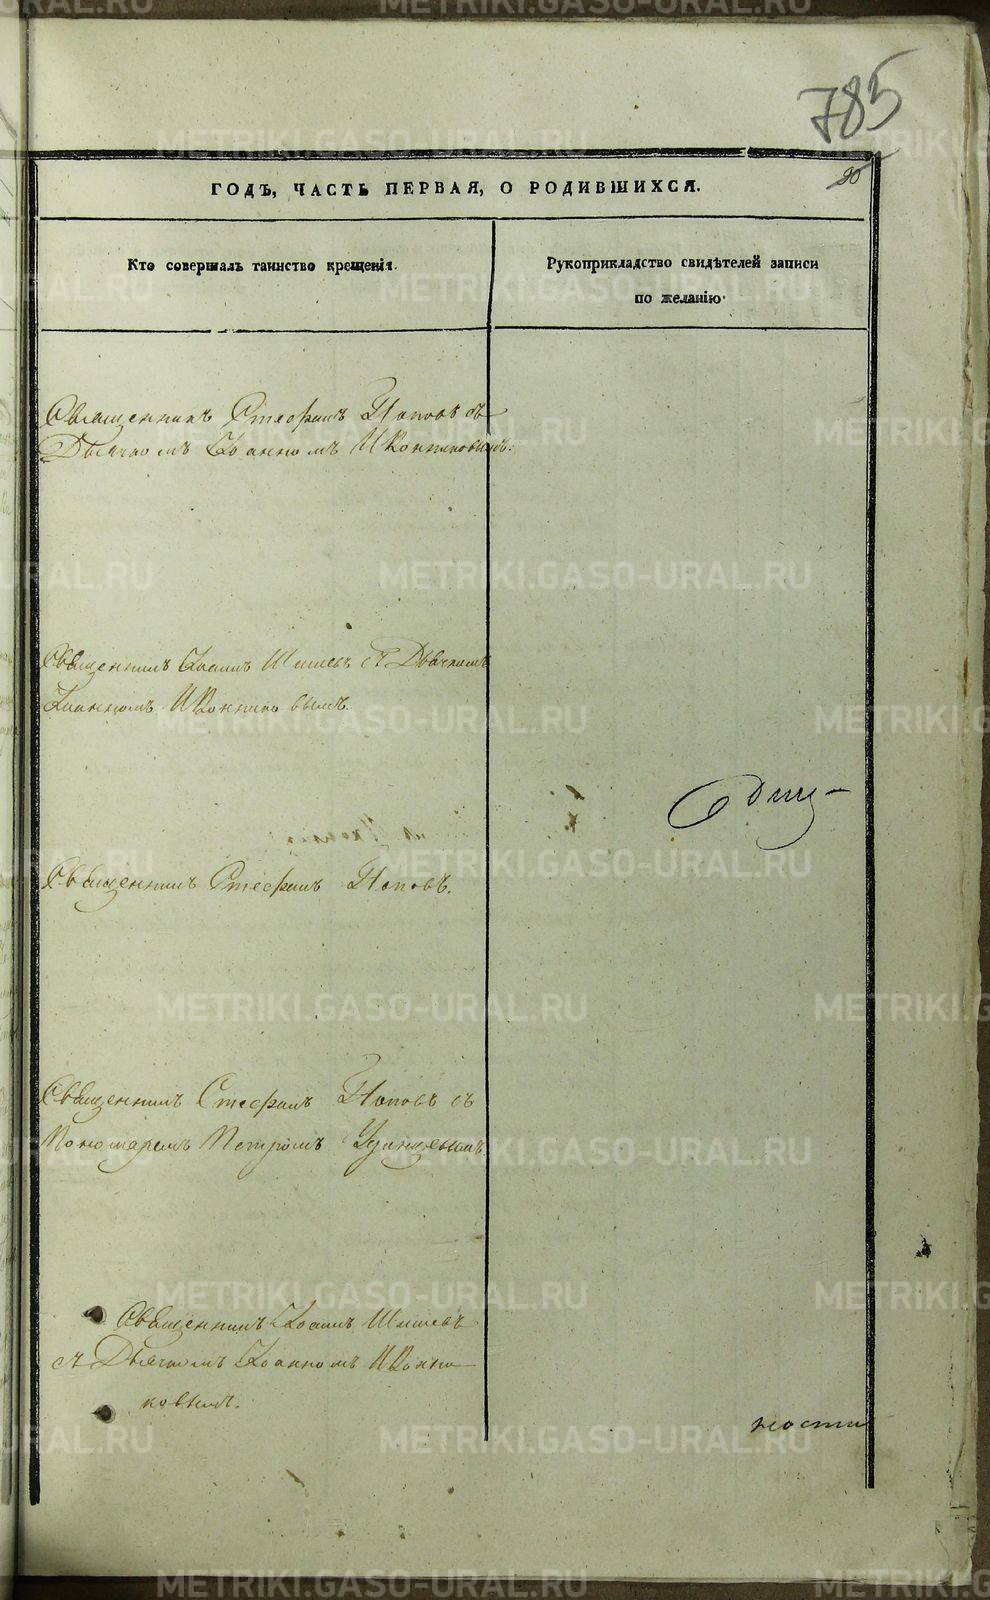 785
90
ГОДЪ, ЧАСТЬ ПЕРВАЯ, О РОДИВШИХСЯ.
Кто совершалъ таинство крещенія.
Рукоприкладство свидѣтелей записи
по желанію
Священникъ Стефанъ Поповъ съ
Дьячкомъ Іоанномъ Иконниковымъ.
Священникъ Іоаннъ Шишевъ съ Дьячкомъ
Іоанномъ Иконниковымъ.
Священникъ Стефанъ Поповъ.
Священникъ Стефанъ Поповъ съ
Пономаремъ Петромъ
Священникъ Іоаннъ Шишевъ
съ Дьячкомъ Іоанномъ Иконни
ковымъ.
ности
METRIKI.GASO-URAL.RU